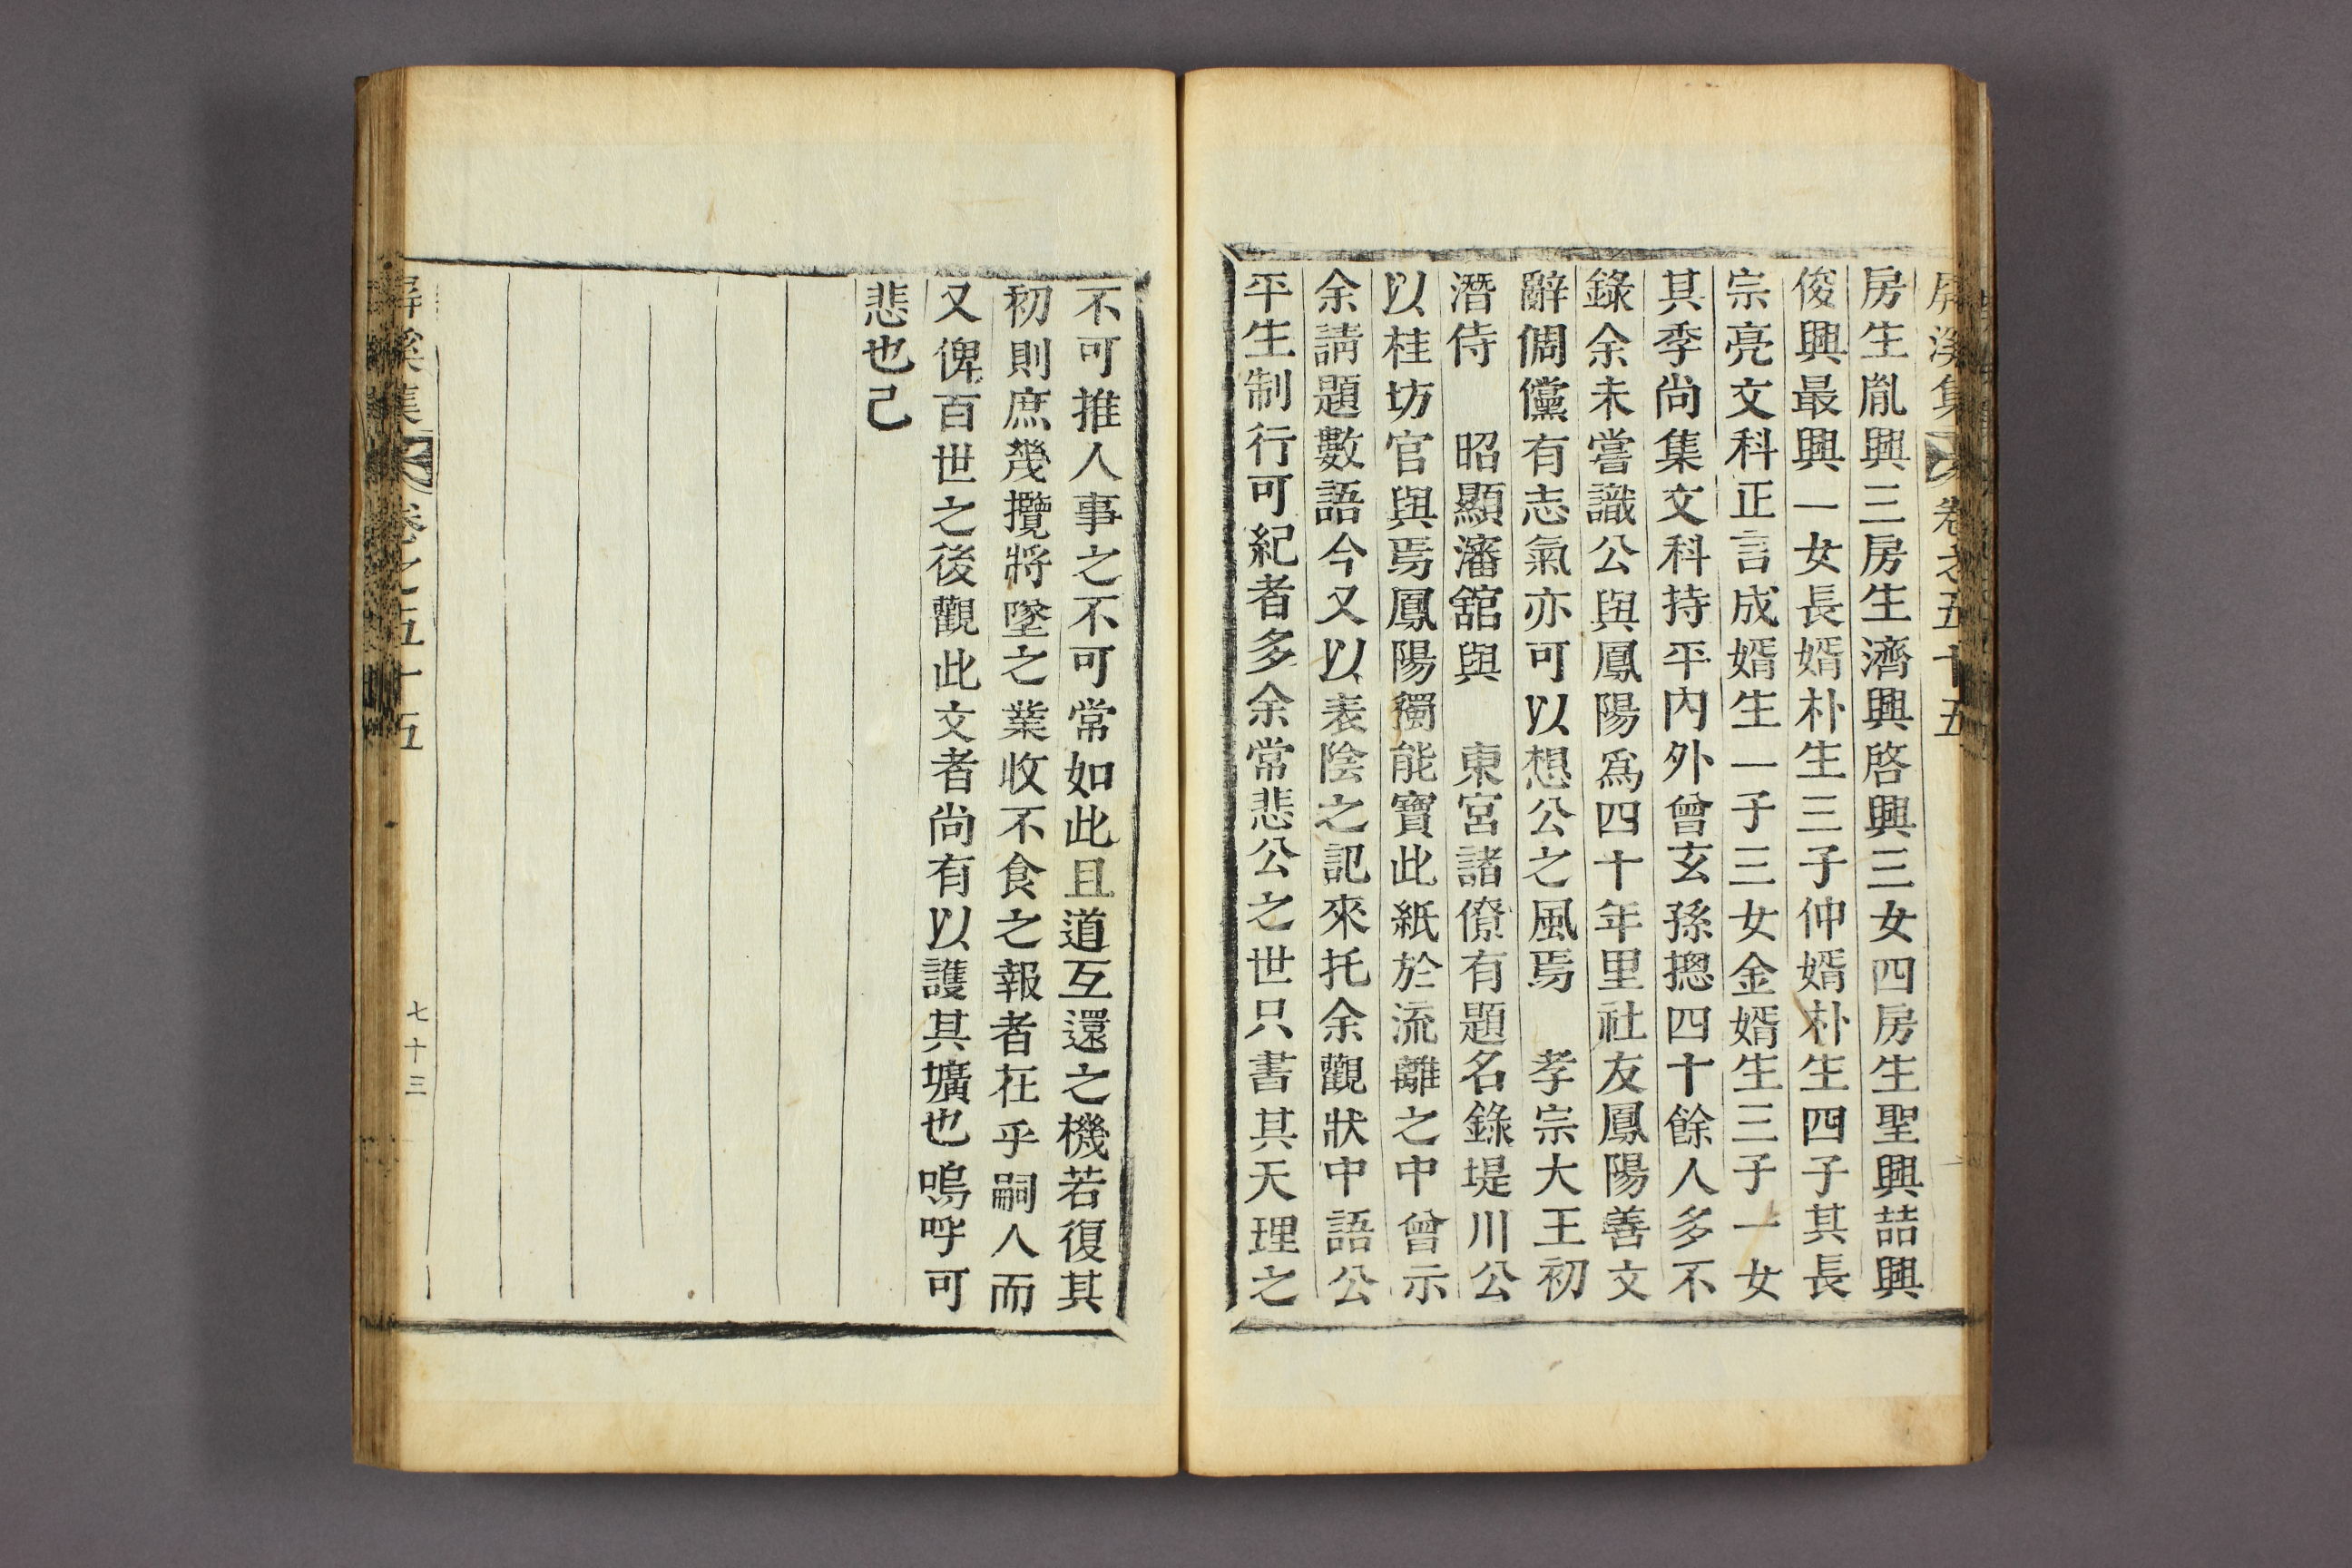 屏溪集 卷之五十五
房生胤興三房生濟興啓興三女四房生聖興喆興
俊興最興一女長婿朴生三子仲婿朴生四子其長
宗亮文科正言成婿生一子三女金婿生三子一女
其季尚集文科持平內外曾玄孫摠四十餘人多不
錄余未嘗識公與鳳陽爲四十年里社友鳳陽善文
辭倜儻有志氣亦可以想公之風焉 孝宗大王初
潛侍 昭顯瀋舘與 東宮諸僚有題名錄堤川公
以桂坊官與焉鳳陽獨能寶此紙於流離之中曾示
余請題數語今又以表陰之記來托余觀狀中語公
平生制行可紀者多余常悲公之世只書其天理之
不可推人事之不可常如此且道互還之機若復其
初則庶幾攬將墜之業收不食之報者在乎嗣人而
又俾百世之後觀此文者尚有以護其壙也嗚呼可
悲也己
屏溪集 卷之五十五
七十三